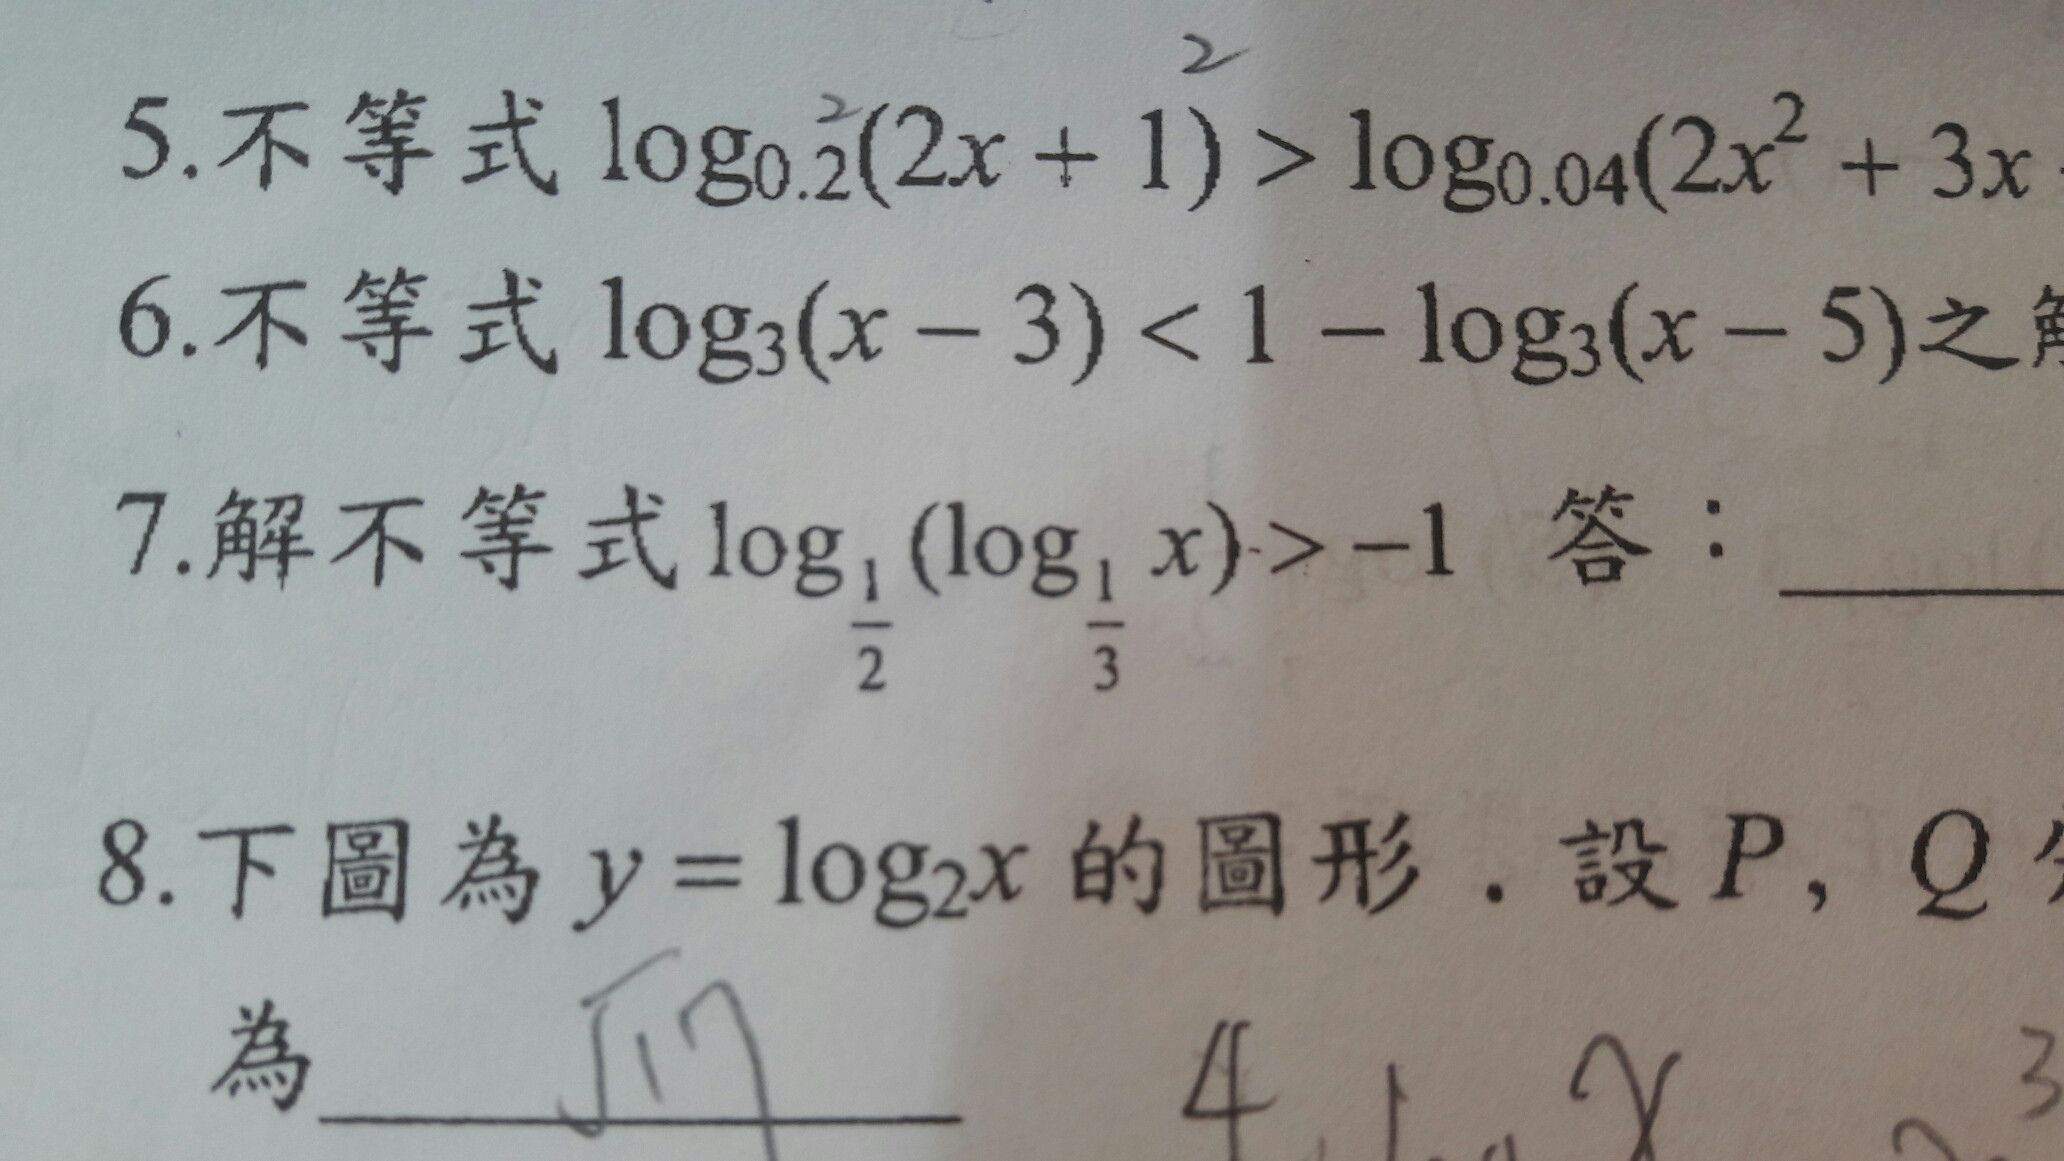 2
2
5.不等式 log₀.₂(2x + 1) > log₀.₀₄(2x² + 3x
6.不等式 log₃(x − 3) < 1 − log₃(x − 5)之解
7.解不等式 log_{1/2} (log_{1/3} x) > −1 答：
8.下圖為 y = log₂x 的圖形．設 P, Q
為 √17 4 x 3